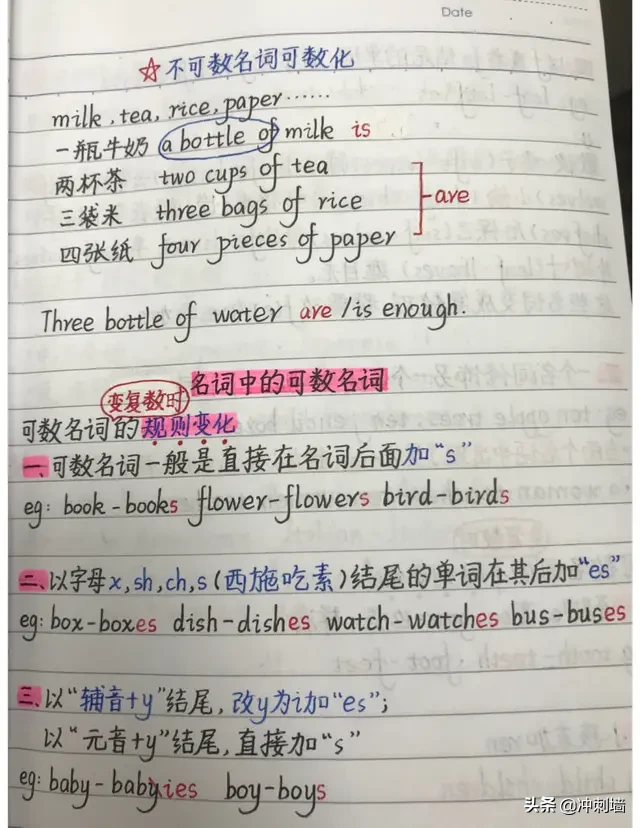 Date
☆不可数名词可数化
milk, tea, rice, paper……
一瓶牛奶 a bottle of milk is
两杯茶 two cups of tea
三袋米 three bags of rice are
四张纸 four pieces of paper
Three bottle of water are /is enough.
名词中的可数名词
变复数时
可数名词的规则变化
一、可数名词一般是直接在名词后面加“s”
eg: book-books flower-flowers bird-birds
二、以字母x,sh,ch,s(西施吃素)结尾的单词在其后加“es”
eg: box-boxes dish-dishes watch-watches bus-buses
三、以“辅音+y”结尾,改y为i加“es”;
以“元音+y”结尾,直接加“s”
eg: baby-babyies boy-boys
头条 @冲刺墙